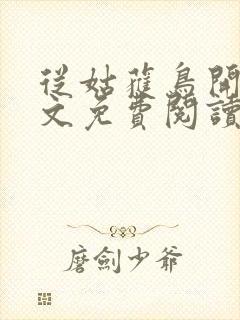 從姑蘿鳥開
文免費閱讀
磨劍少爺